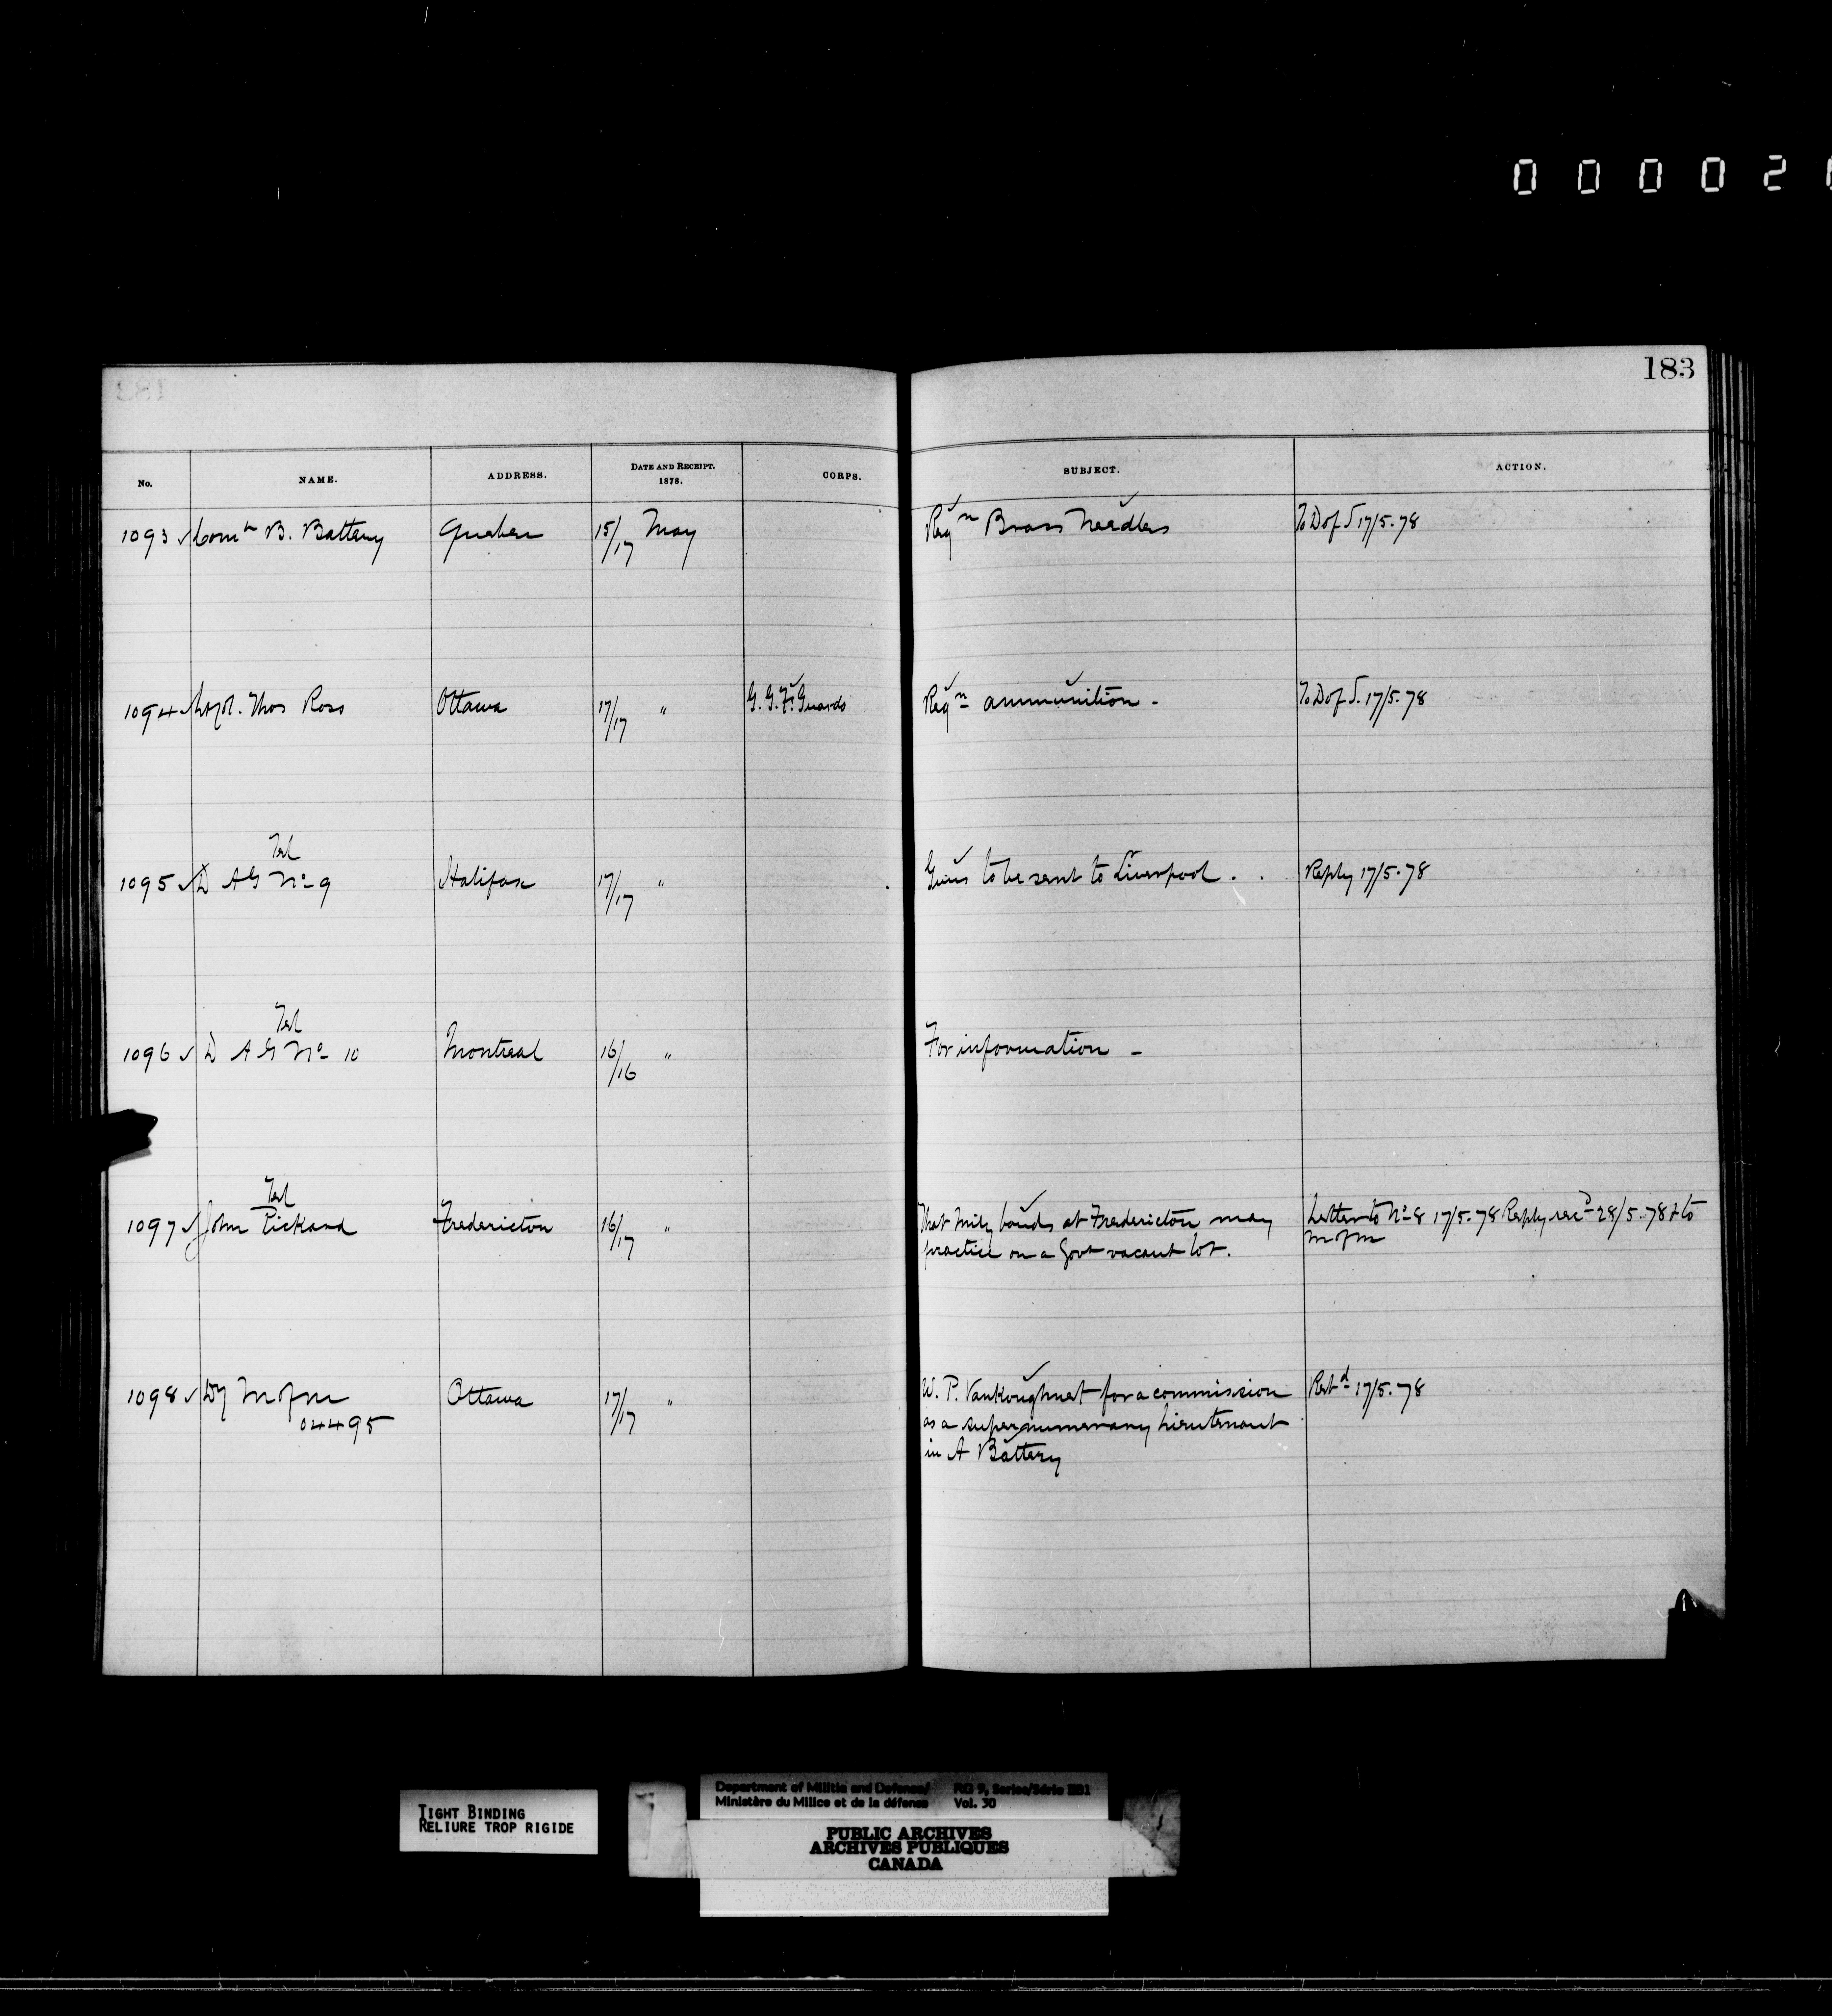 0 0 0 0 2
183
No. NAME. ADDRESS. DATE AND RECEIPT. 1878. CORPS. SUBJECT. ACTION.
1093 ✓ Comᵗʰ B. Battery Quebec 15/17 May Reqⁿ Brass Needles To D of S 17/5.78
1094 ✓ Majr. Thos Ross Ottawa 17/17 " G. G. F. Guards Reqⁿ ammunition - To D of S. 17/5.78
Tel
1095 ✓ D A G No 9 Halifax 17/17 " Guns to be sent to Liverpool . . Reply 17/5.78
Tel
1096 ✓ D A G No 10 Montreal 16/16 " For information -
Tel
1097 ✓ John Pickard Fredericton 16/17 " That Mily bands at Fredericton may Letter to No 8 17/5.78 Reply recᵈ 28/5.78 & to
practice on a Govt vacant lot. M of M
1098 ✓ Dy M of M Ottawa 17/17 " W. P. Vankoughnet for a commission Retᵈ 17/5.78
04495 as a supernumerary Lieutenant
in A Battery
TIGHT BINDING
RELIURE TROP RIGIDE
Department of Militia and Defence/ RG 9, Series/Série IIB1
Ministère du Milice et de la défense Vol. 30
PUBLIC ARCHIVES
ARCHIVES PUBLIQUES
CANADA